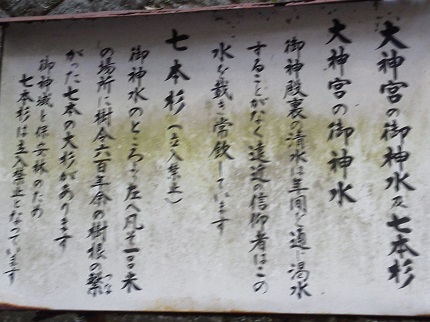 大神宮の御神水及七本杉
大神宮の御神水
御神殿裏の清水は年間を通し渇水
することがなく遠近の信仰者はこの
水を戴き常飲しています
七本杉(立入禁止)
御神水のところから左へ凡そ一百米
の場所に樹令六百年余の樹根の繋
つな
がった七本の大杉があります
御神域と保安林のため
七本杉は立入禁止となっています